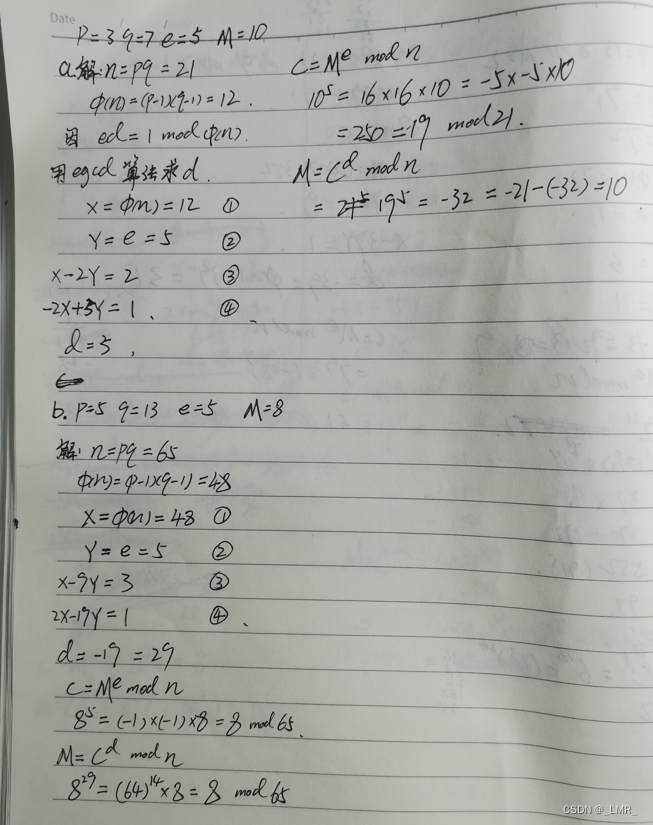 Date
P=3 q=7 e=5 M=10
a.解:n=pq=21
φ(n)=(p-1)(q-1)=12.
因 ed=1 mod φ(n).
用egcd算法求d.
X=φ(n)=12 ①
Y=e=5 ②
X-2Y=2 ③
-2X+5Y=1. ④
d=5,
C=M^e mod n
10^5=16×16×10=-5×-5×10
=250=19 mod 21.
M=C^d mod n
= 19^5=-32=-21-(-32)=10
b. P=5 q=13 e=5 M=8
解: n=pq=65
φ(n)=(p-1)(q-1)=48
X=φ(n)=48 ①
Y=e=5 ②
X-9Y=3 ③
2X-19Y=1 ④.
d=-19=29
C=M^e mod n
8^5=(-1)×(-1)×8=8 mod 65.
M=C^d mod n
8^29=(64)^14×8=8 mod 65
CSDN @_LMR_